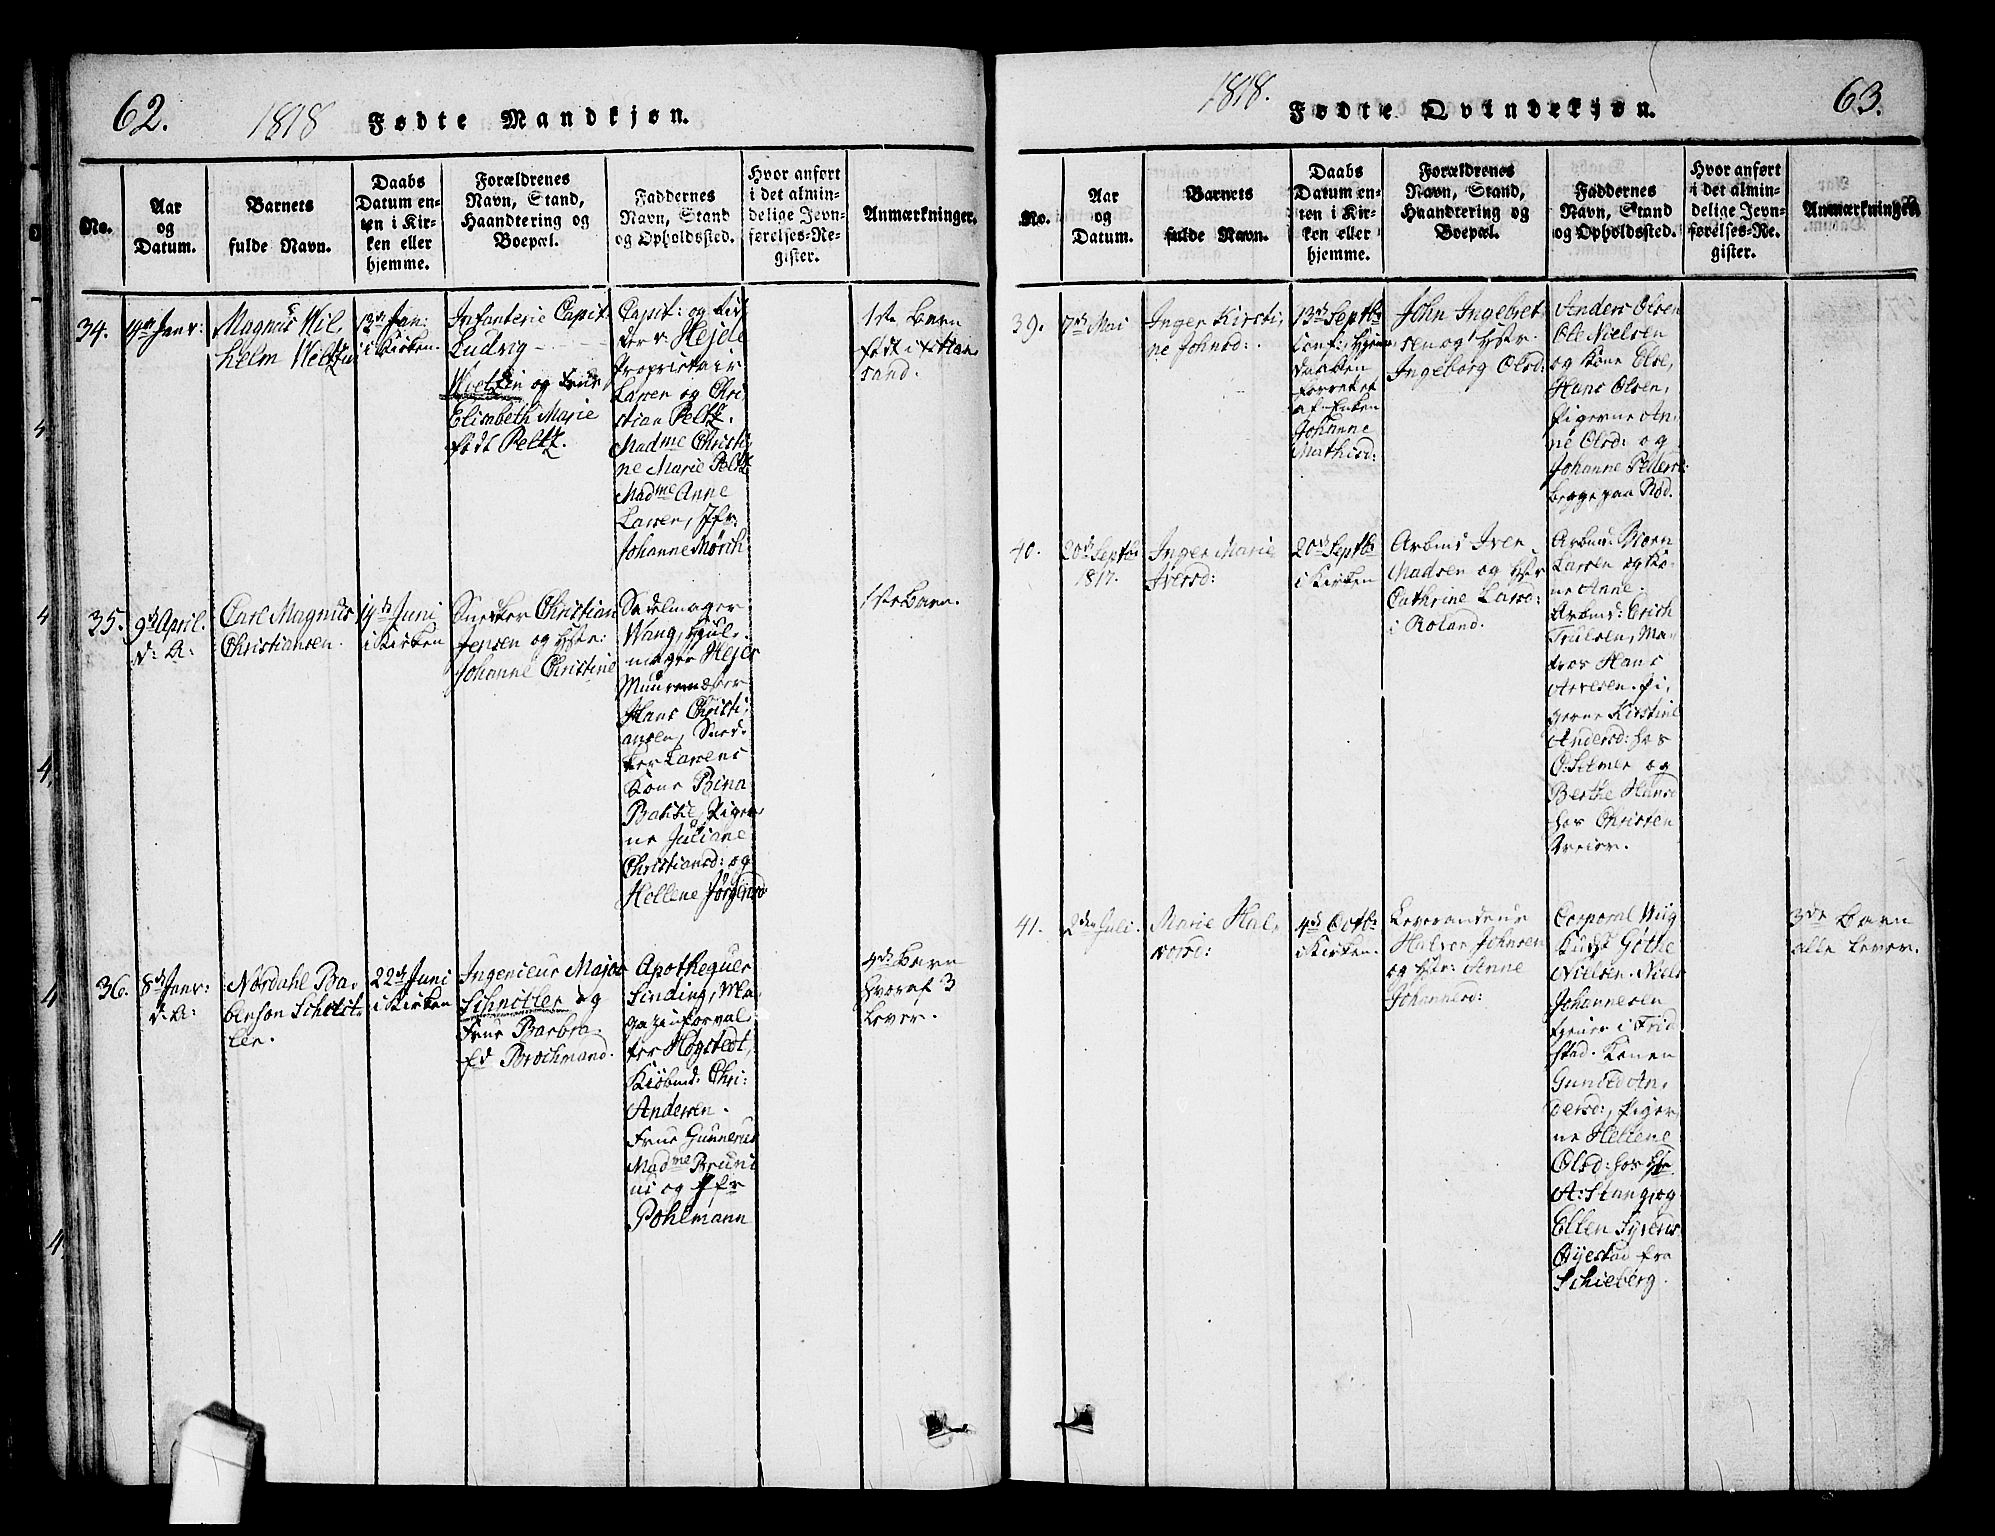 62.
1818
Fødte Mandkjøn.
No.
Aar
og
Datum.
Barnets
fulde Navn.
Daabs
Datum en-
ten i Kir-
ken eller
hjemme.
Forældrenes
Navn, Stand,
Haandtering og
Boepæl.
Faddernes
Navn, Stand
og Opholdssted.
Hvor anført
i det almin-
delige Jevn-
førelses-Re-
gister.
Anmærkninger.
34.
Janr:
Magnus Wil,
helm
13de Jan:
i Kirken.
Infanterie Capit.
Ludvig
og Frue
Elisabeth Marie
født Peltz.
Capit: og Rid
der v. Hejde
Proprietair
Larsen og Chri
stian Peltz.
Madme Christi,
ne Marie Peltz
Madme Anne
Larsen, Jfr.
Johanne Mørch
1ste Barn
født i Xtian
sand.
35.
9de April.
d: A:
Carl Magnus
Christiansen.
14de Juni
i Kirken
Snedker Christian
Jensen og Hstr:
Johanne Christine
Sadelmager
Wang, Hjul-
mager Hejer
Muurmester
Hans Christi,
ansen, Sned-
ker Larsens
Kone Bina
Pigер
ne Juliane
Christiansd: og
Hellene Jørgensd
1ste Barn.
36.
8de Janr:
d: A:
Nordahl Ba,
benson
ler.
22de Juni
i Kirken
Ingenieur Major
Schnitler og
Frue Barbra
fd Brochmand.
Apothequer
Sinding, Ma-
gazinforval-
ter Høgstedt,
Kiøbmd: Chri:
Andersen.
Frue Gunnerus
Madme Bruni
us og Jfr
Pohlmann
4de Barn
hvoraf 3
lever.
1818.
Fødte Qvindekjøn.
63.
No.
Aar
og
Datum.
Barnets
fulde Navn.
Daabs
Datum en-
ten i Kir-
ken eller
hjemme.
Forældrenes
Navn, Stand,
Haandtering og
Boepæl.
Faddernes
Navn, Stand
og Opholdssted.
Hvor anført
i det almin-
delige Jevn-
førelses-Re-
gister.
Anmærkninger.
39.
7de Mai
Inger Kirsti,
ne Johnsd:
13de Septbr
Conf: Hjemme
daaben
forrettet
af Enken
Johanne
Mathisd:
John Ingebret
sen og Hstr.
Ingeborg Olsd:
Anders Olsen
Ole Nielsen
og Kone Else,
Hans Olsen,
Pigerne An,
ne Olsd: og
Johanne Peders:
begge paa Rød.
40.
20de Septbr
1817.
Inger Marie
Iversd:
20de Septbr
i Kirken
Arbmd Iver
Madsen og Hstr
Cathrine Larsd:
i Roland.
Arbmd: Biørn
Larsen og Ko-
ne Anne.
Arbmd: Erich
Trulsen, Ma-
tros Hans
Arvesen. Pi,
gerne Kirstine
Andersd: hos
O: Selmer og
Berthe Hansd
hos Christen
41.
2den Juli
Marie Hal,
vorsd:
4de Octbr
i Kirken.
Leverandeur
Halvor Johnsen
og Hstr: Anne
Johannesd:
Corporal
Göthe
Nielsen. Niels
Johannesen
i Frid
stad. Konen
Gunild An,
dersd:, Piger,
ne Hellene
Olsd: hos Hr
A: Stang, og
Ellen
fra
Schieberg.
3de Barn
alle lever.